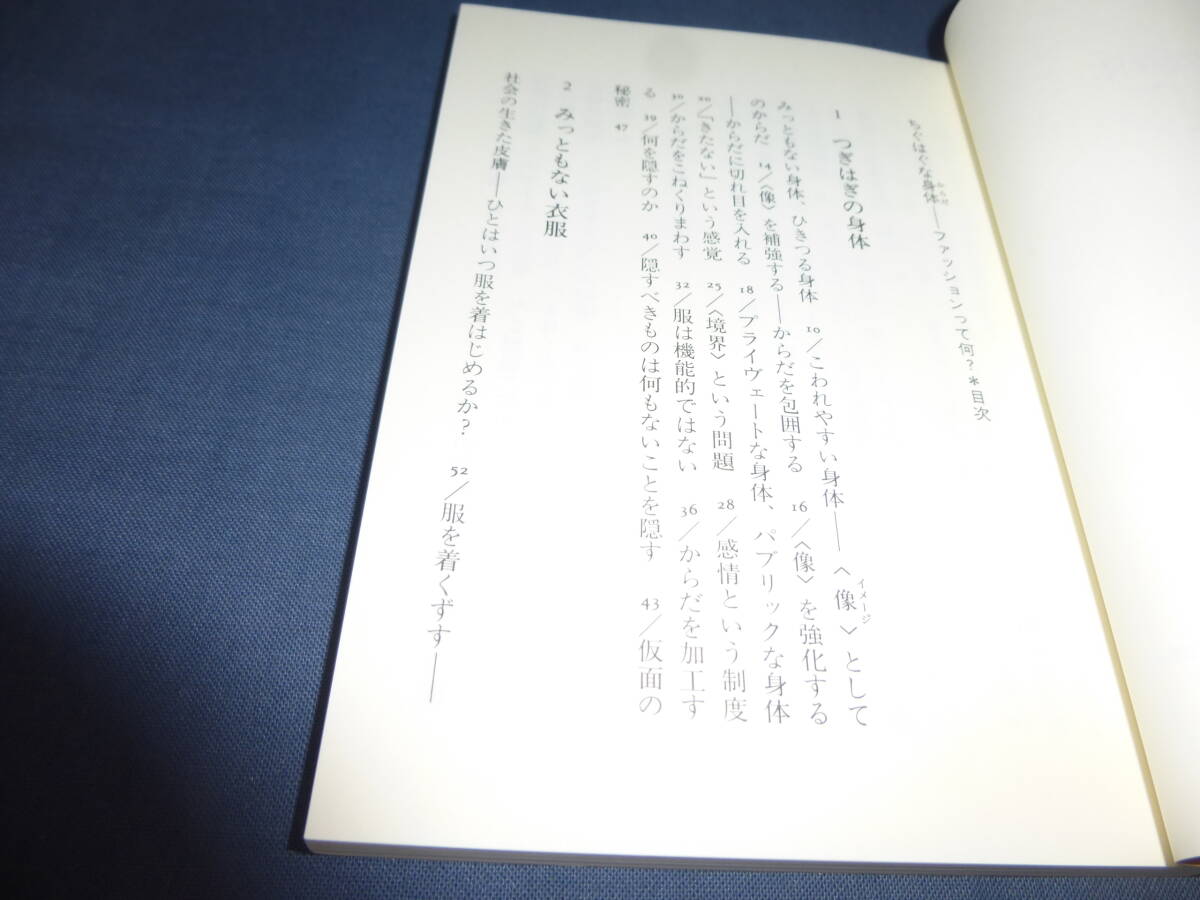 ちぐはぐな身体――ファッションって何?*目次
からだ
1 つぎはぎの身体
みっともない身体、ひきつる身体 10/こわれやすい身体――〈像〉として
イメージ
のからだ 14/〈像〉を補強する――からだを包囲する 16/〈像〉を強化する
――からだに切れ目を入れる 18/プライヴェートな身体、パブリックな身体
20/「きたない」という感覚 25/〈境界〉という問題 28/感情という制度
30/からだをこねくりまわす 32/服は機能的ではない 36/からだを加工す
る 39/何を隠すのか 40/隠すべきものは何もないことを隠す 43/仮面の
秘密 47
2 みっともない衣服
社会の生きた皮膚――ひとはいつ服を着はじめるか? 52/服を着くずす――